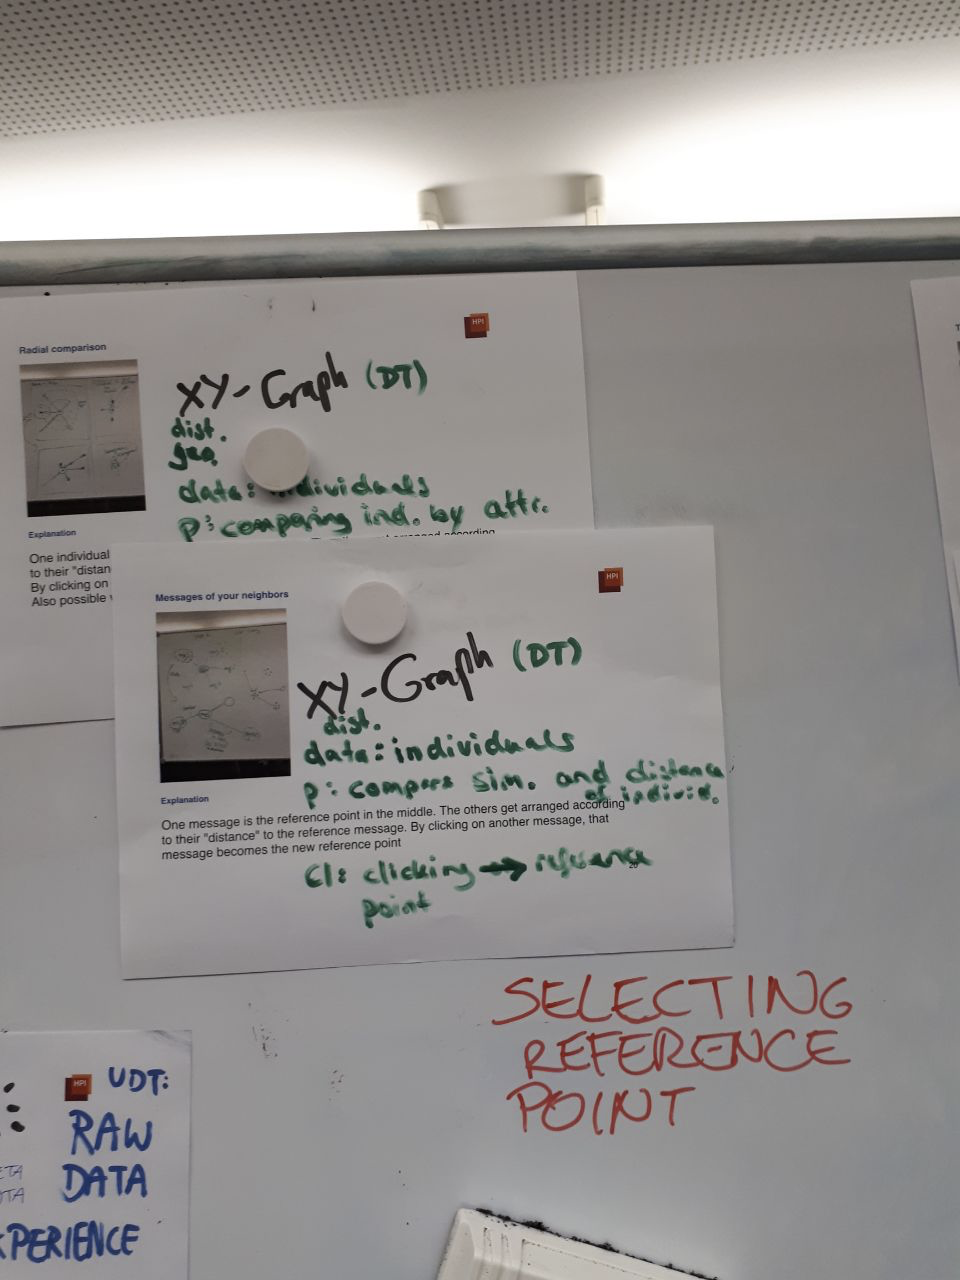 Radial comparison
HPI
XY-Graph (DT)
dist.
geo.
data: individuals
P: comparing ind. by attr.
Explanation
One individual
to their "distan
By clicking on
Also possible
according
Messages of your neighbors
HPI
XY-Graph (DT)
dist.
data: individuals
P: compare sim. and distance
of individ.
Explanation
One message is the reference point in the middle. The others get arranged according
to their "distance" to the reference message. By clicking on another message, that
message becomes the new reference point
CI: clicking → reference
point
20
SELECTING
REFERENCE
POINT
HPI
UDT:
RAW
DATA
XPERIENCE